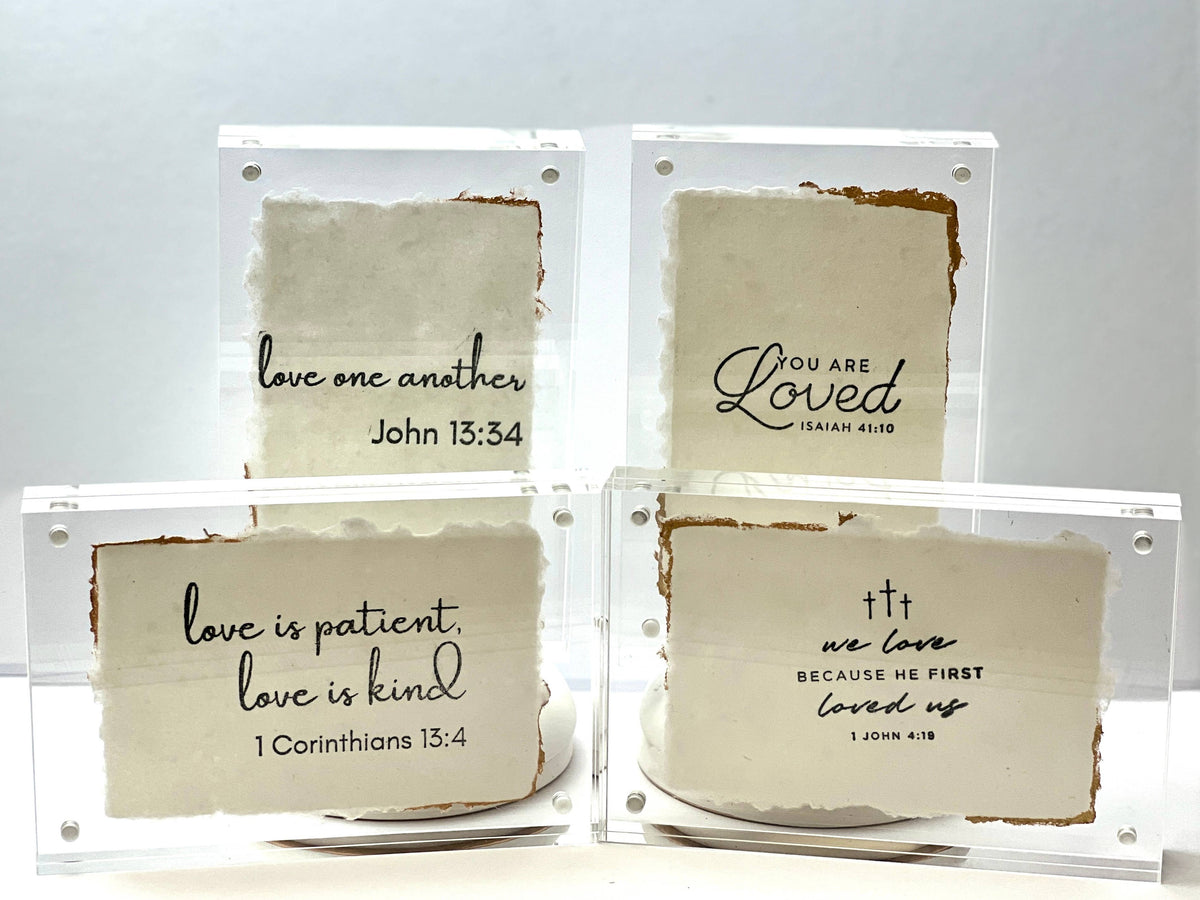 love one another
John 13:34
YOU ARE
Loved
ISAIAH 41:10
love is patient,
love is kind
1 Corinthians 13:4
we love
BECAUSE HE FIRST
loved us
1 JOHN 4:19